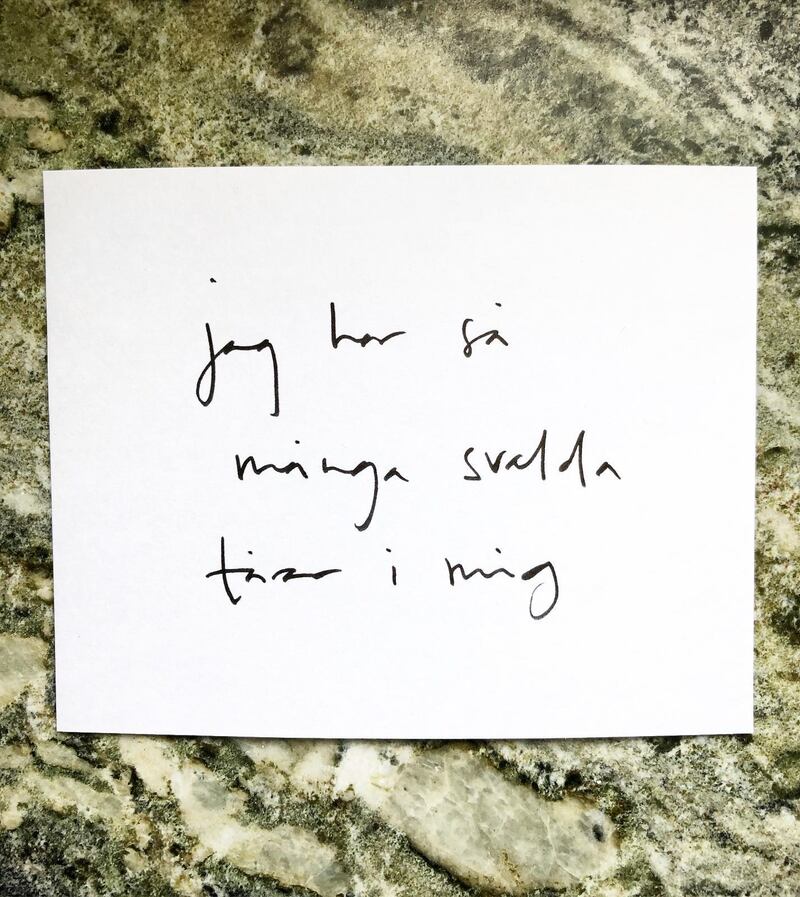 jag har så
många svalda
tårar i mig